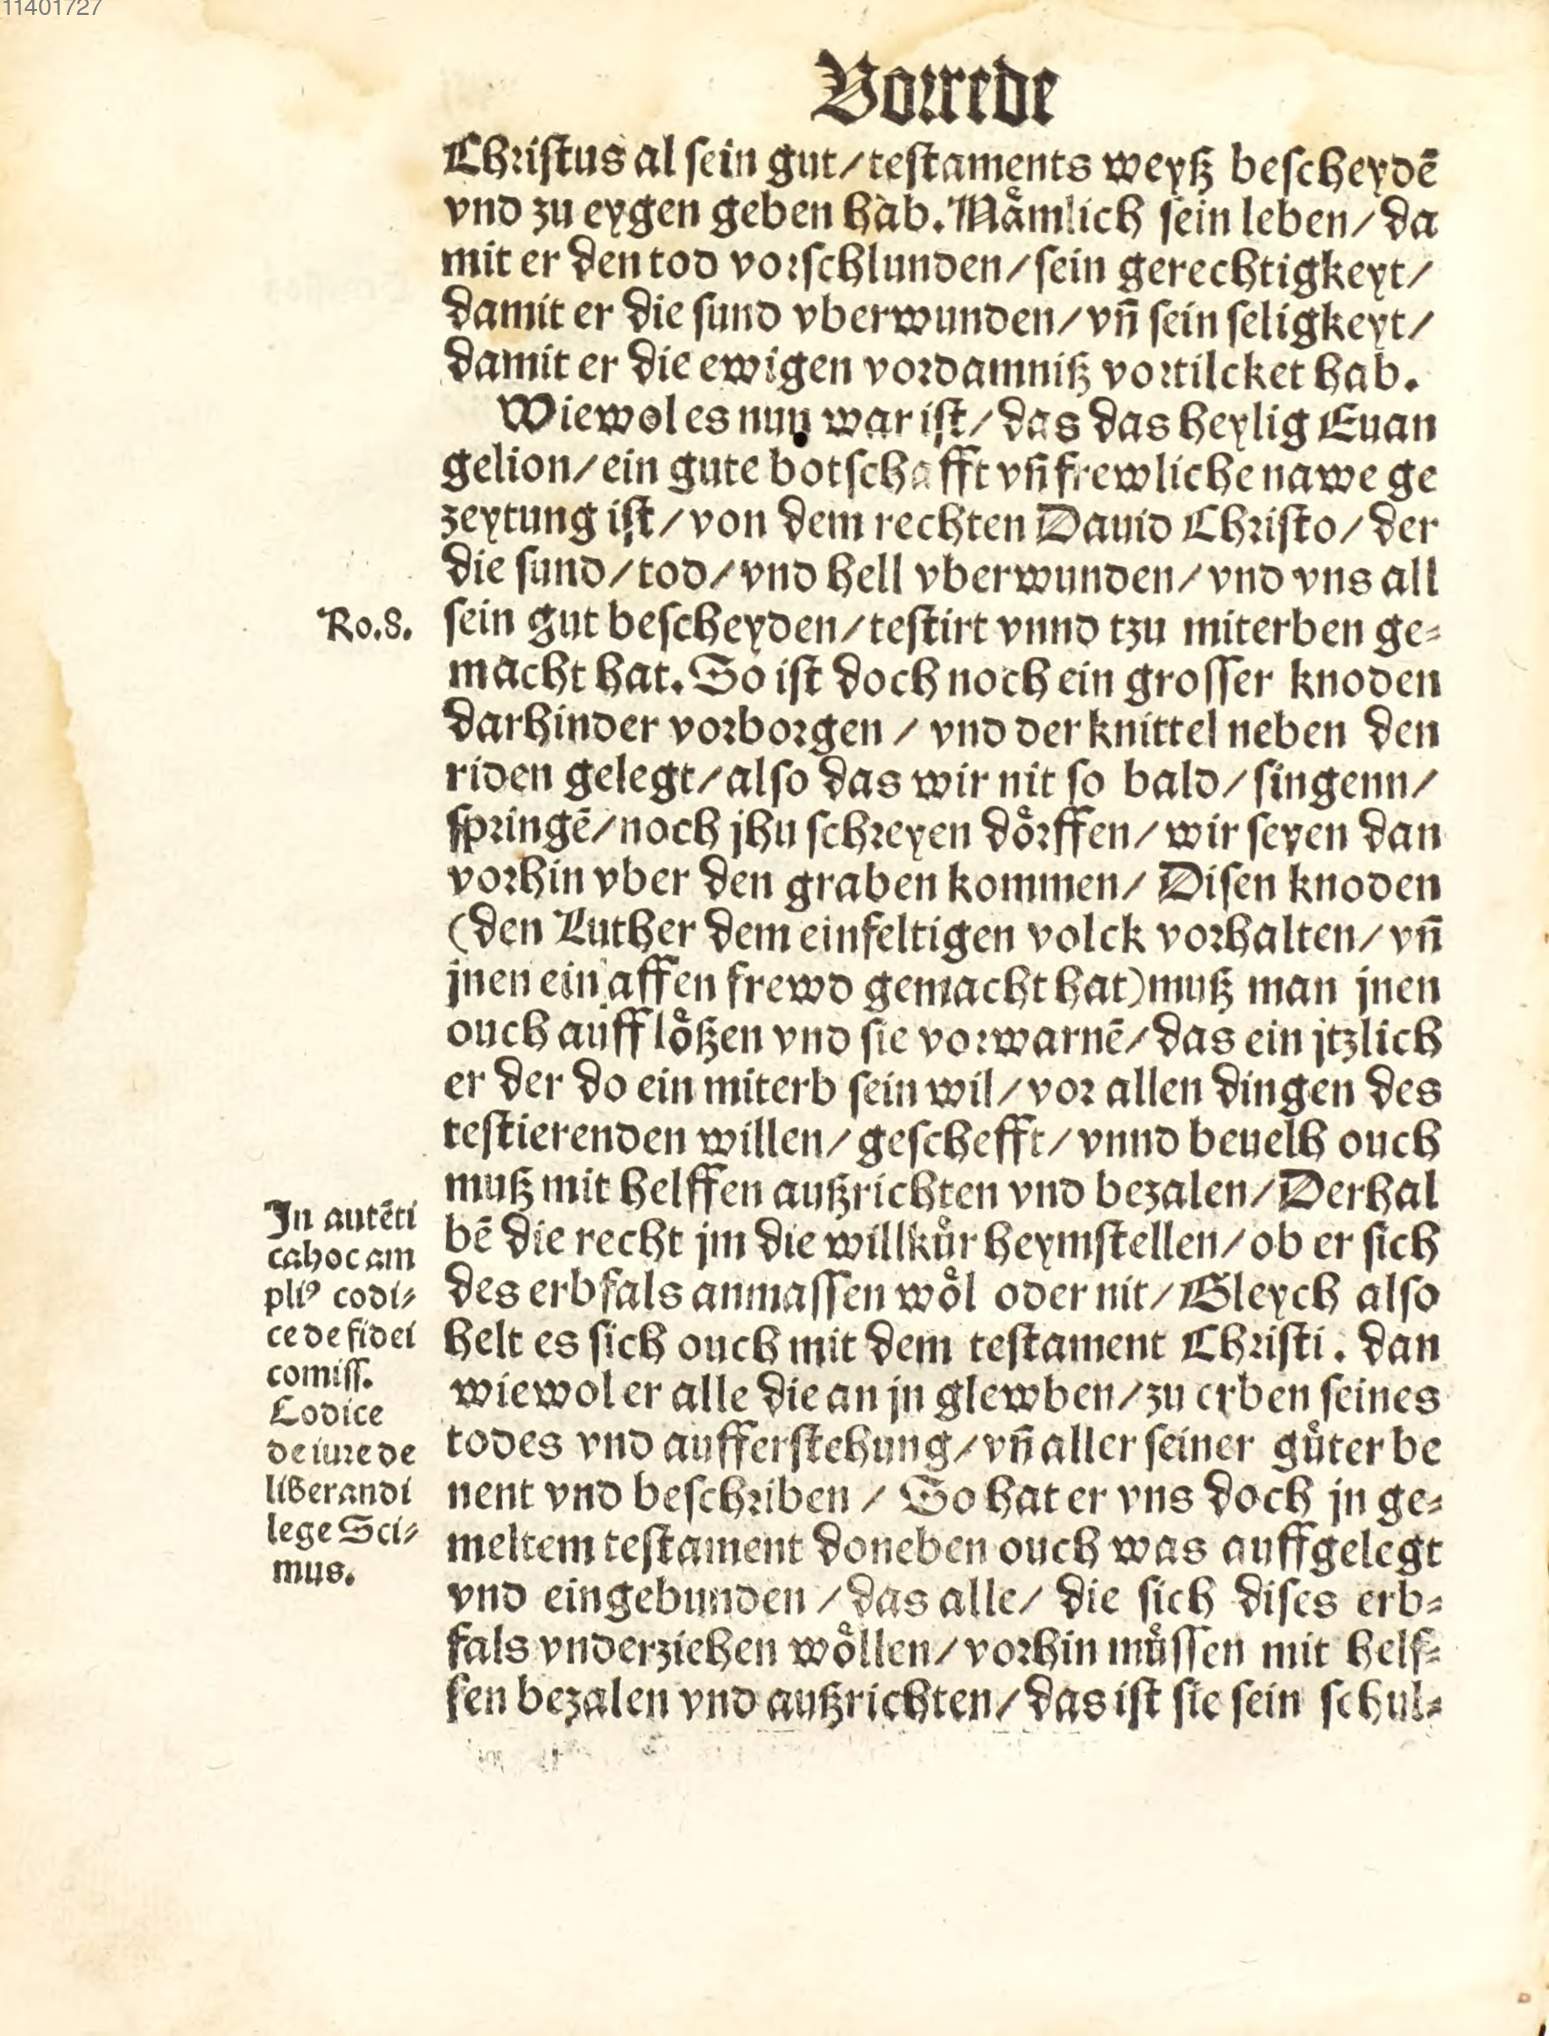 11401727
Vorrede
Christus al sein gut/testaments weyß bescheydē
vnd zu eygen geben hab. Nåmlich sein leben/da
mit er den tod vorschlunden/sein gerechtigkeyt/
damit er die sund vberwunden/vñ sein seligkeyt/
damit er die ewigen vordamniß vortilcket hab.
Wiewol es nun war ist/das das heylig Euan
gelion/ein gute botschafft vñ frewliche nawe ge
zeytung ist/von dem rechten Dauid Christo/der
die sund/tod/vnd hell vberwunden/vnd vns all
Ro.8.
sein gut bescheyden/testirt vnnd tzu miterben ge=
macht hat. So ist doch noch ein grosser knoden
darhinder vorborgen/vnd der knittel neben den
riden gelegt/also das wir nit so bald/singenn/
springē/noch jhu schreyen doͤrffen/wir seyen dan
vorhin vber den graben kommen/Disen knoden
(den Luther dem einfeltigen volck vorhalten/vñ
jnen ein affen frewd gemacht hat) muß man jnen
ouch auff loͤßen vnd sie vorwarnē/das ein jtzlich
er der do ein miterb sein wil/vor allen dingen des
testierenden willen/geschefft/vnnd beuelh ouch
muß mit helffen außrichten vnd bezalen/Derhal
bē die recht jm die willkuͤr heymstellen/ob er sich
des erbfals anmassen woͤl oder nit/Gleych also
helt es sich ouch mit dem testament Christi. dan
wiewol er alle die an jn glewben/zu erben seines
todes vnd aufferstehung/vñ aller seiner guͤter be
nent vnd beschriben/So hat er vns doch jn ge=
meltem testament doneben ouch was auffgelegt
vnd eingebunden/das alle/die sich dises erb=
fals vnderziehen woͤllen/vorhin muͤssen mit helf=
fen bezalen vnd außrichten/das ist sie sein schul=
In autēti
ca hoc am
pliꝰ codi=
ce de fidei
comiss.
Codice
de iure de
liberandi
lege Sci=
mus.